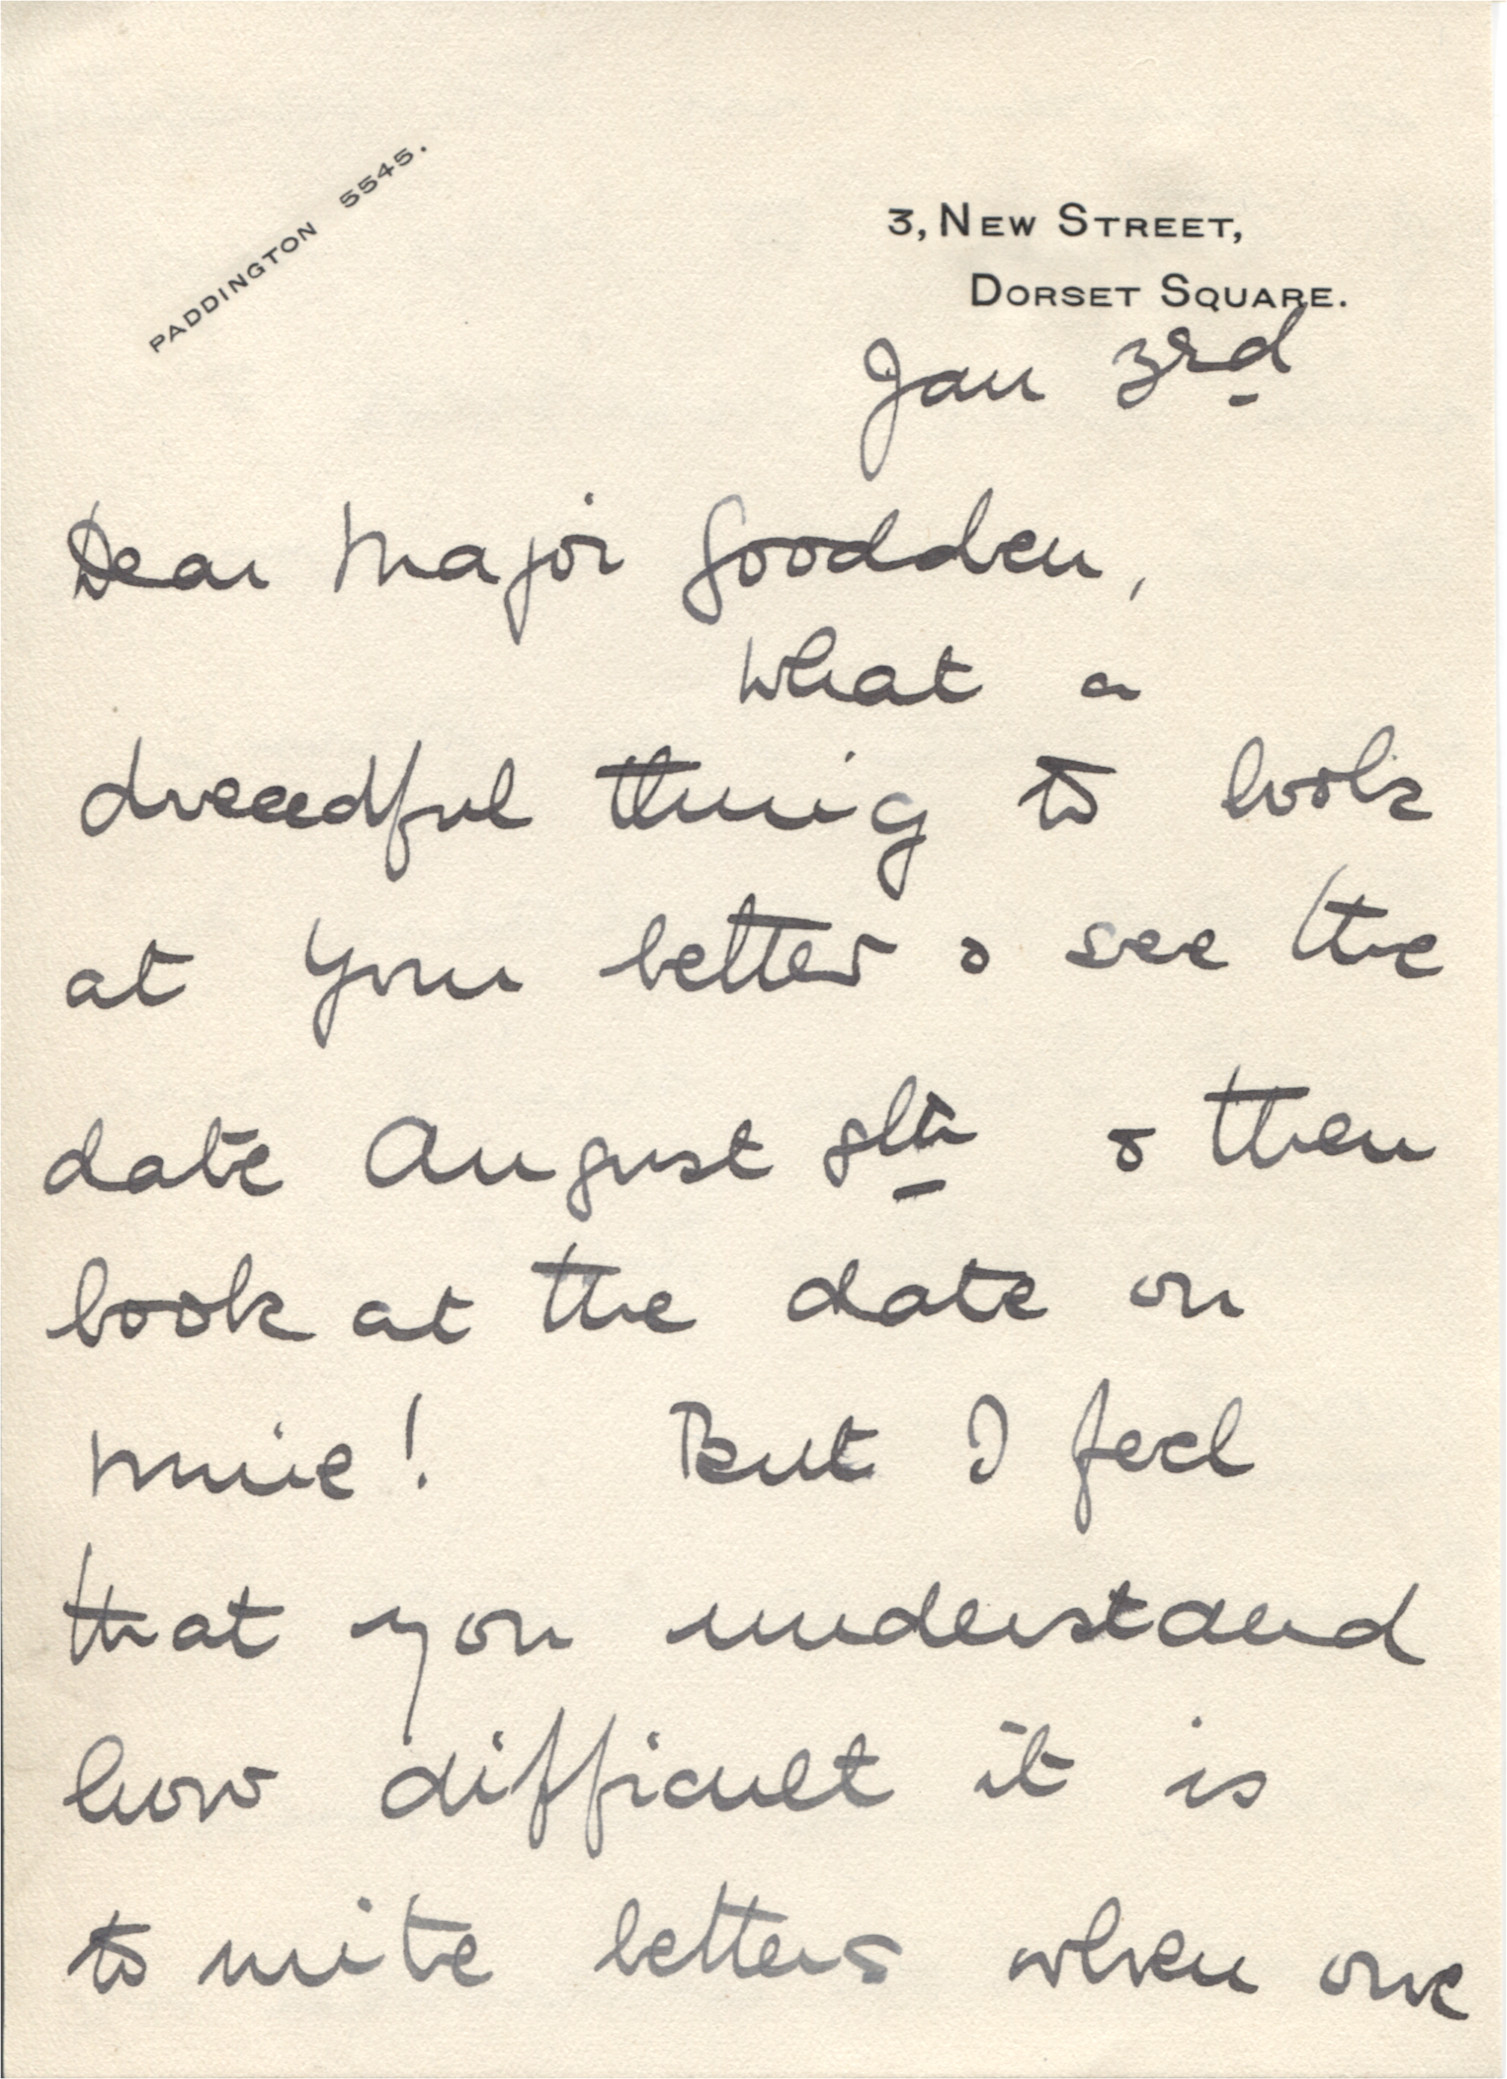 PADDINGTON 5545.
3, NEW STREET,
DORSET SQUARE.
Jan 3rd
Dear Major Goodden,
What a
dreadful thing to look
at your letter & see the
date August 8th & then
look at the date on
mine! But I feel
that you understand
how difficult it is
to write letters when one